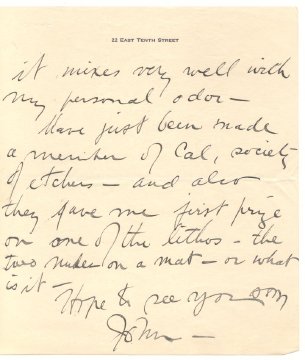 22 EAST TENTH STREET
it mixes very well with
my personal odor —
Have just been made
a member of Cal, society
of etchers — and also
they gave me first prize
on one of the lithos — the
two nudes on a mat — or what
is it —
Hope to see you soon
John —